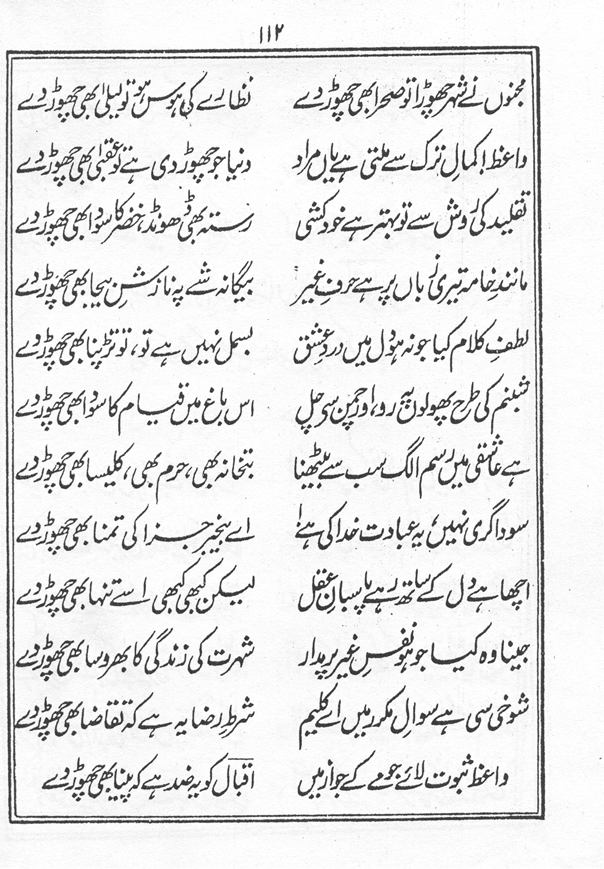 ۱۱۲
مجنوں نے شہر چھوڑا تو صحرا بھی چھوڑ دے نظارے کی ہوس ہو تو لیلیٰ بھی چھوڑ دے
واعظ! کمالِ ترک سے ملتی ہے یاں مراد دنیا جو چھوڑ دی ہے تو عقبیٰ بھی چھوڑ دے
تقلید کی روش سے تو بہتر ہے خودکشی رستہ بھی ڈھونڈ، خضر کا سودا بھی چھوڑ دے
مانندِ خامہ تیری زباں پر ہے حرفِ غیر بیگانہ شے پہ نازشِ بیجا بھی چھوڑ دے
لطفِ کلام کیا جو نہ ہو دل میں دردِ عشق بسمل نہیں ہے تو، تو تڑپنا بھی چھوڑ دے
شبنم کی طرح پھولوں پہ رو، اور چمن سے چل اس باغ میں قیام کا سودا بھی چھوڑ دے
ہے عاشقی میں رسم الگ سب سے بیٹھنا بتخانہ بھی، حرم بھی، کلیسا بھی چھوڑ دے
سوداگری نہیں، یہ عبادت خدا کی ہے! اے بیخبر جزا کی تمنا بھی چھوڑ دے
اچھا ہے دل کے ساتھ رہے پاسبانِ عقل لیکن کبھی کبھی اسے تنہا بھی چھوڑ دے
جینا وہ کیا جو ہو نفسِ غیر پر مدار شہرت کی زندگی کا بھروسا بھی چھوڑ دے
شوخی سی ہے سوالِ مکرر میں اے کلیم شرطِ رضا یہ ہے کہ تقاضا بھی چھوڑ دے
واعظ ثبوت لائے جو مے کے جواز میں اقبال کو یہ ضد ہے کہ پینا بھی چھوڑ دے